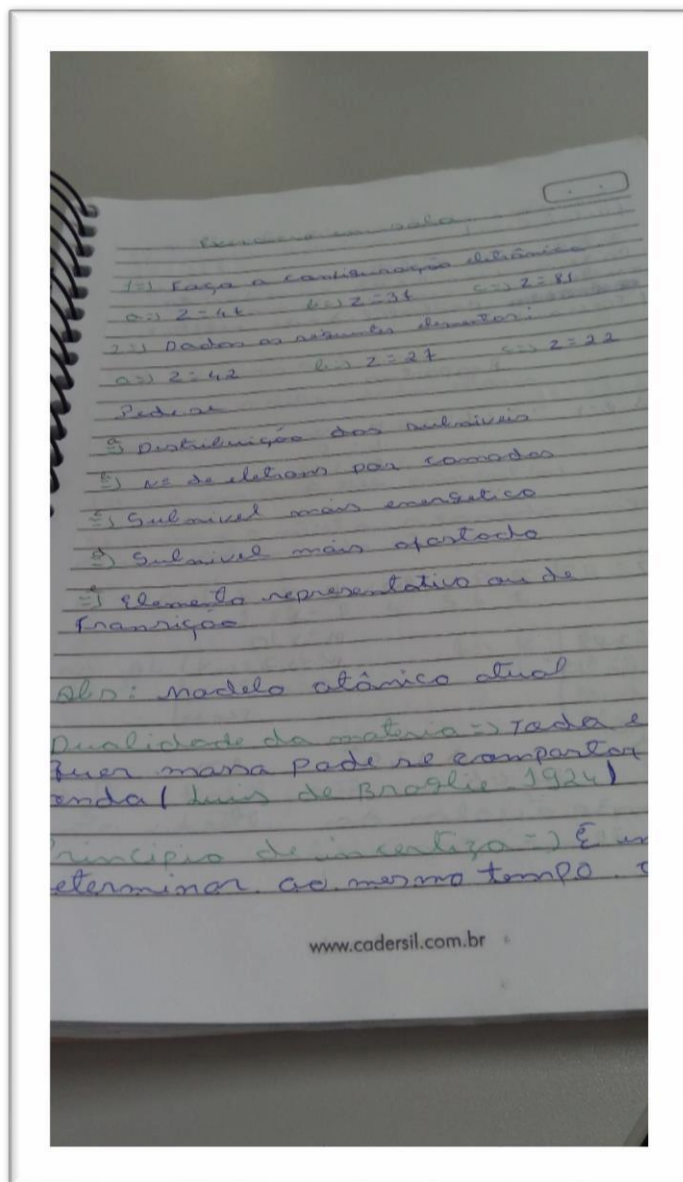 Exercício em sala
1=) Faça a configuração eletrônica
a=) Z=47 b=) Z=37 c=) Z=81
2=) Dados os seguintes elementos:
a=) Z=42 b=) Z=27 c=) Z=22
Pede-se
a) Distribuição dos subníveis
b) Nº de eletrons por camadas
c) Subnivel mais energético
d) Subnivel mais afastado
e) Elemento representativo ou de
transição
Obs: Modelo atômico atual
Dualidade da materia => Toda e
quer massa pode se comportar
onda (Luis de Broglie 1924)
rincipio de incerteza =) É im
eterminar ao mesmo tempo
www.cadersil.com.br